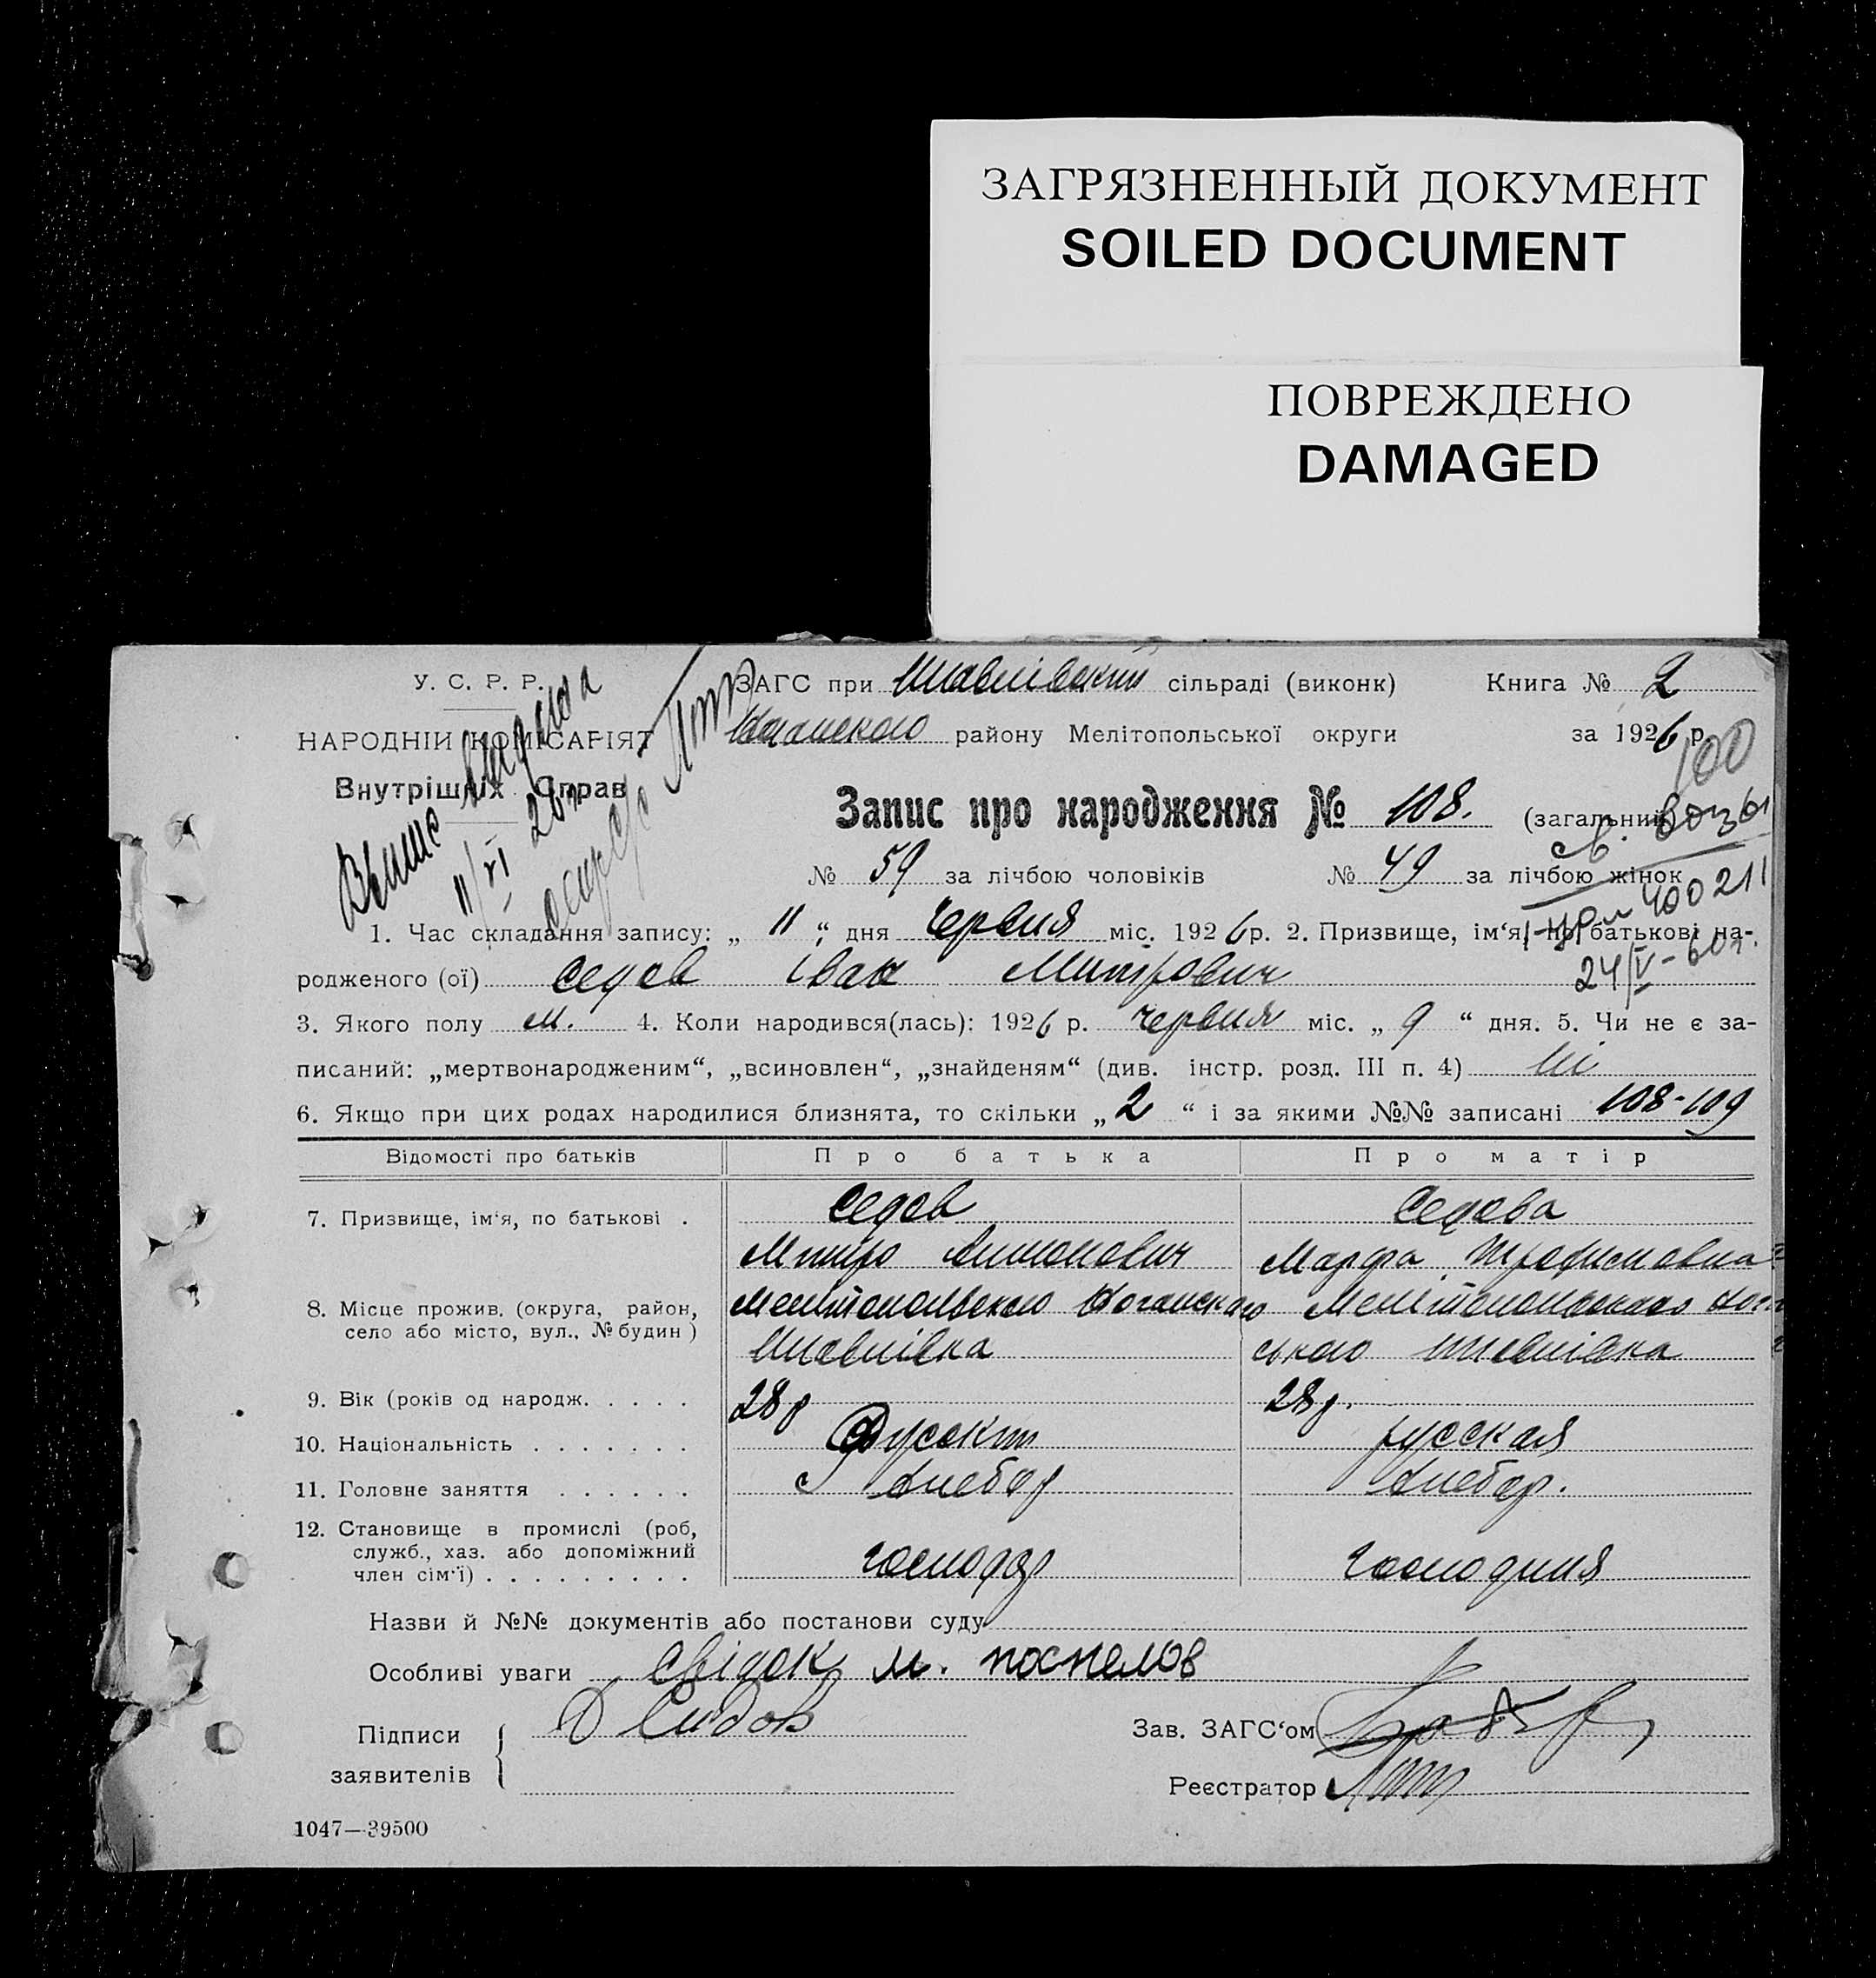 ЗАГРЯЗНЕННЫЙ ДОКУМЕНТ
SOILED DOCUMENT
ПОВРЕЖДЕНО
DAMAGED
У. С. Р. Р.
НАРОДНІЙ КОМІСАРІЯТ
Внутрішніх Справ
ЗАГС при сільраді (виконк) Книга № 2
району Мелітопольської округи за 1926 р.
100
Запис про народження № 108. (загальний)
№ 59 за лічбою чоловіків № 49 за лічбою жінок
11/VI 26
400211
24/V-60г.
1. Час складання запису: „ 11 “ дня Червня міс. 1926 р. 2. Призвище, ім'я, по батькові на-
родженого (ої) Седов Іван Митрович
3. Якого полу м. 4. Коли народився(лась): 1926 р. червня міс. „ 9 “ дня. 5. Чи не є за-
писаний: „мертвонародженим“, „всиновлен“, „знайденям“ (див. інстр. розд. III п. 4) ні
6. Якщо при цих родах народилися близнята, то скільки „ 2 “ і за якими №№ записані 108-109
Відомості про батьків Про батька Про матір
7. Призвище, ім'я, по батькові . Седов Седова
Митро Марфа Трофимовна
8. Місце прожив. (округа, район,
село або місто, вул., № будин )
Мелітопольського Ногайського Мелітопольського
ського
9. Вік (років од народж. . . . . 28 р 28 р.
10. Національність . . . . . . . Русский русская
11. Головне заняття . . . . . . Хлебор Хлебор.
12. Становище в промислі (роб,
служб., хаз. або допоміжний
член сім'ї) . . . . . . . . . господар господиня
Назви й №№ документів або постанови суду
Особливі уваги Свідок м. поспелов
Підписи
заявителів
Д Сидов
Зав. ЗАГС'ом
Реєстратор
1047—39500